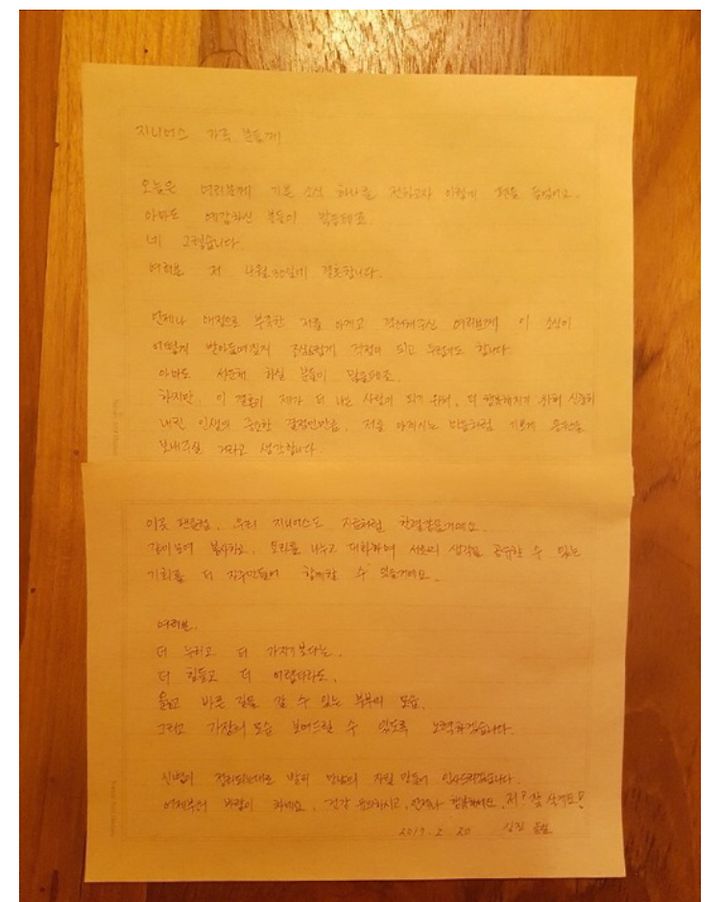 지니어스 가족 분들께
오늘은 여러분께 기쁜 소식 하나를 전하고자 이렇게 펜을 들었어요.
아마도 예감하신 분들이 많을테죠.
네 그렇습니다.
여러분 저 결혼합니다.
언제나 애정으로 부족한 저를 아끼고 격려해주신 여러분께 이 소식이
어떻게 받아들여질지 조심스럽게 걱정이 되고 두렵기도 합니다.
아마도 서운해 하실 분들이 많을테죠.
하지만, 이 결혼이 제가 더 나은 사람이 되기 위해, 더 행복해지기 위해 신중히
내린 인생의 중요한 결정인만큼, 저를 아끼시는 마음처럼 기쁘게 응원을
보내주실 거라고 생각합니다
이곳 팬클럽, 우리 지니어스도 지금처럼 한결같을거에요.
같이 모여 봉사하고, 요리를 나누고 대화하며 서로의 생각을 공유할 수 있는
기회를 더 자주 만들어 함께할 수 있을거에요.
여러분.
더 누리고 더 가지기 보다는,
더 힘들고 더 어렵더라도,
옳고 바른 길을 갈 수 있는 부부의 모습,
그리고 가장의 모습 보여드릴 수 있도록 노력하겠습니다.
신변이 정리되는대로 빨리 만남의 자릴 만들어 인사드리겠습니다.
어제부터 바람이 차네요, 건강 유의하시고, 언제나 행복하세요.
20